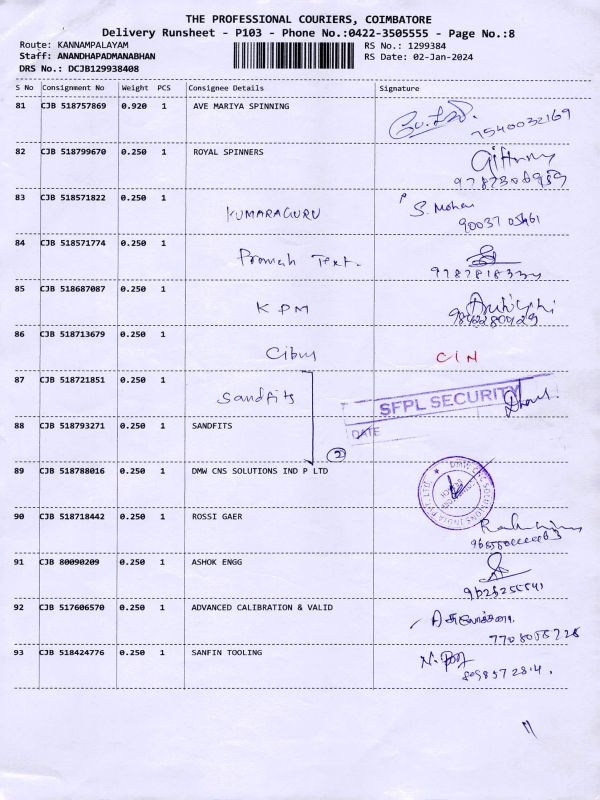 THE PROFESSIONAL COURIERS, COIMBATORE
Delivery Runsheet - P103 - Phone No.:0422-3505555 - Page No.:8
Route: KANNAMPALAYAM RS No.: 1299384
Staff: ANANDHAPADMANABHAN RS Date: 02-Jan-2024
DRS No.: DCJB129938408
S No Consignment No Weight PCS Consignee Details Signature
81 CJB 518757869 0.920 1 AVE MARIYA SPINNING
7540032169
82 CJB 518799670 0.250 1 ROYAL SPINNERS
83 CJB 518571822 0.250 1 KUMARAGURU S. Mohan
84 CJB 518571774 0.250 1 Text.
85 CJB 518687087 0.250 1 KPM
86 CJB 518713679 0.250 1 CIN
87 CJB 518721851 0.250 1 Sandfits SFPL SECURITY
88 CJB 518793271 0.250 1 SANDFITS DATE
2
89 CJB 518788016 0.250 1 DMW CNS SOLUTIONS IND P LTD DMW CNC SOLUTIONS INDIA PVT LTD
90 CJB 518718442 0.250 1 ROSSI GAER
91 CJB 80090209 0.250 1 ASHOK ENGG
92 CJB 517606570 0.250 1 ADVANCED CALIBRATION & VALID
93 CJB 518424776 0.250 1 SANFIN TOOLING